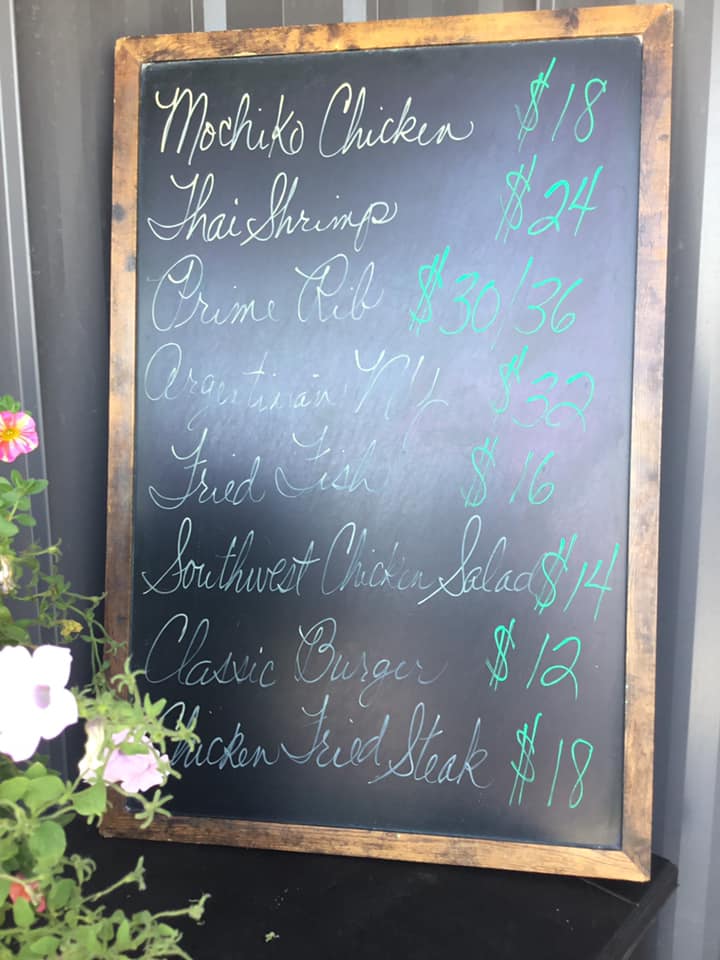 Mochiko Chicken $18
Thai Shrimp $24
Prime Rib $30/36
Argentinian NY $32
Fried Fish $16
Southwest Chicken Salad $14
Classic Burger $12
Chicken Fried Steak $18